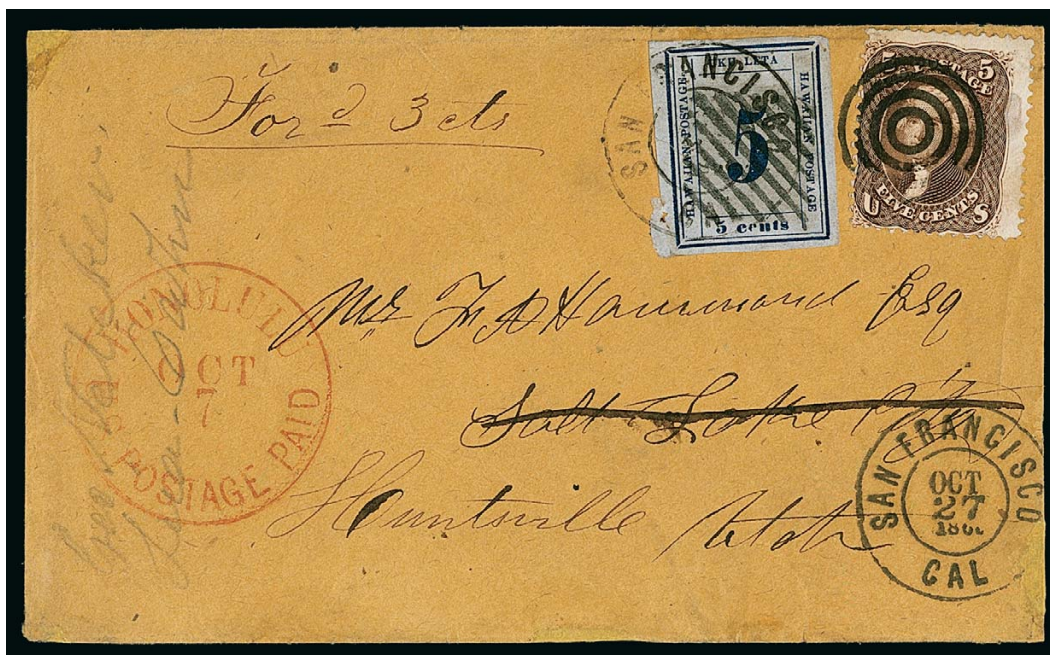 For^d 3 cts
UKU LETA
HAWAIIAN POSTAGE
HAWAIIAN POSTAGE
5
5 cents
SAN FRANCISCO
5 5
U.S. POSTAGE
FIVE CENTS
U S
HONOLULU
U.S. POSTAGE PAID
OCT
7
Mr F A Hammond Esq
Salt Lake City
Huntsville Utah
SAN FRANCISCO
OCT
27
CAL